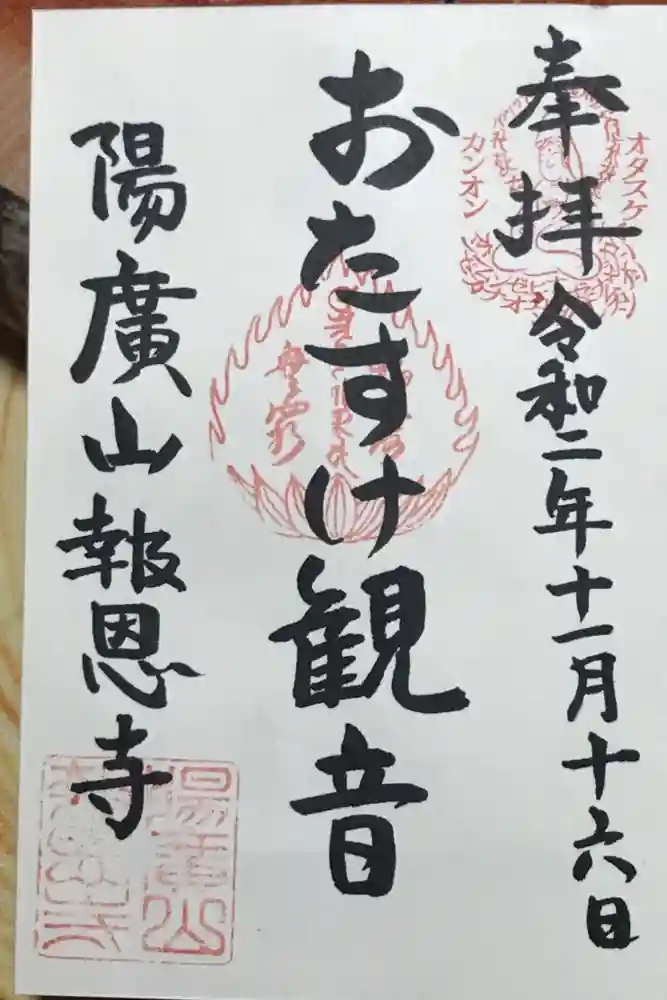 奉拝
令和二年十一月十六日
オタスケ
カンオン
おたすけ観音
陽廣山報恩寺